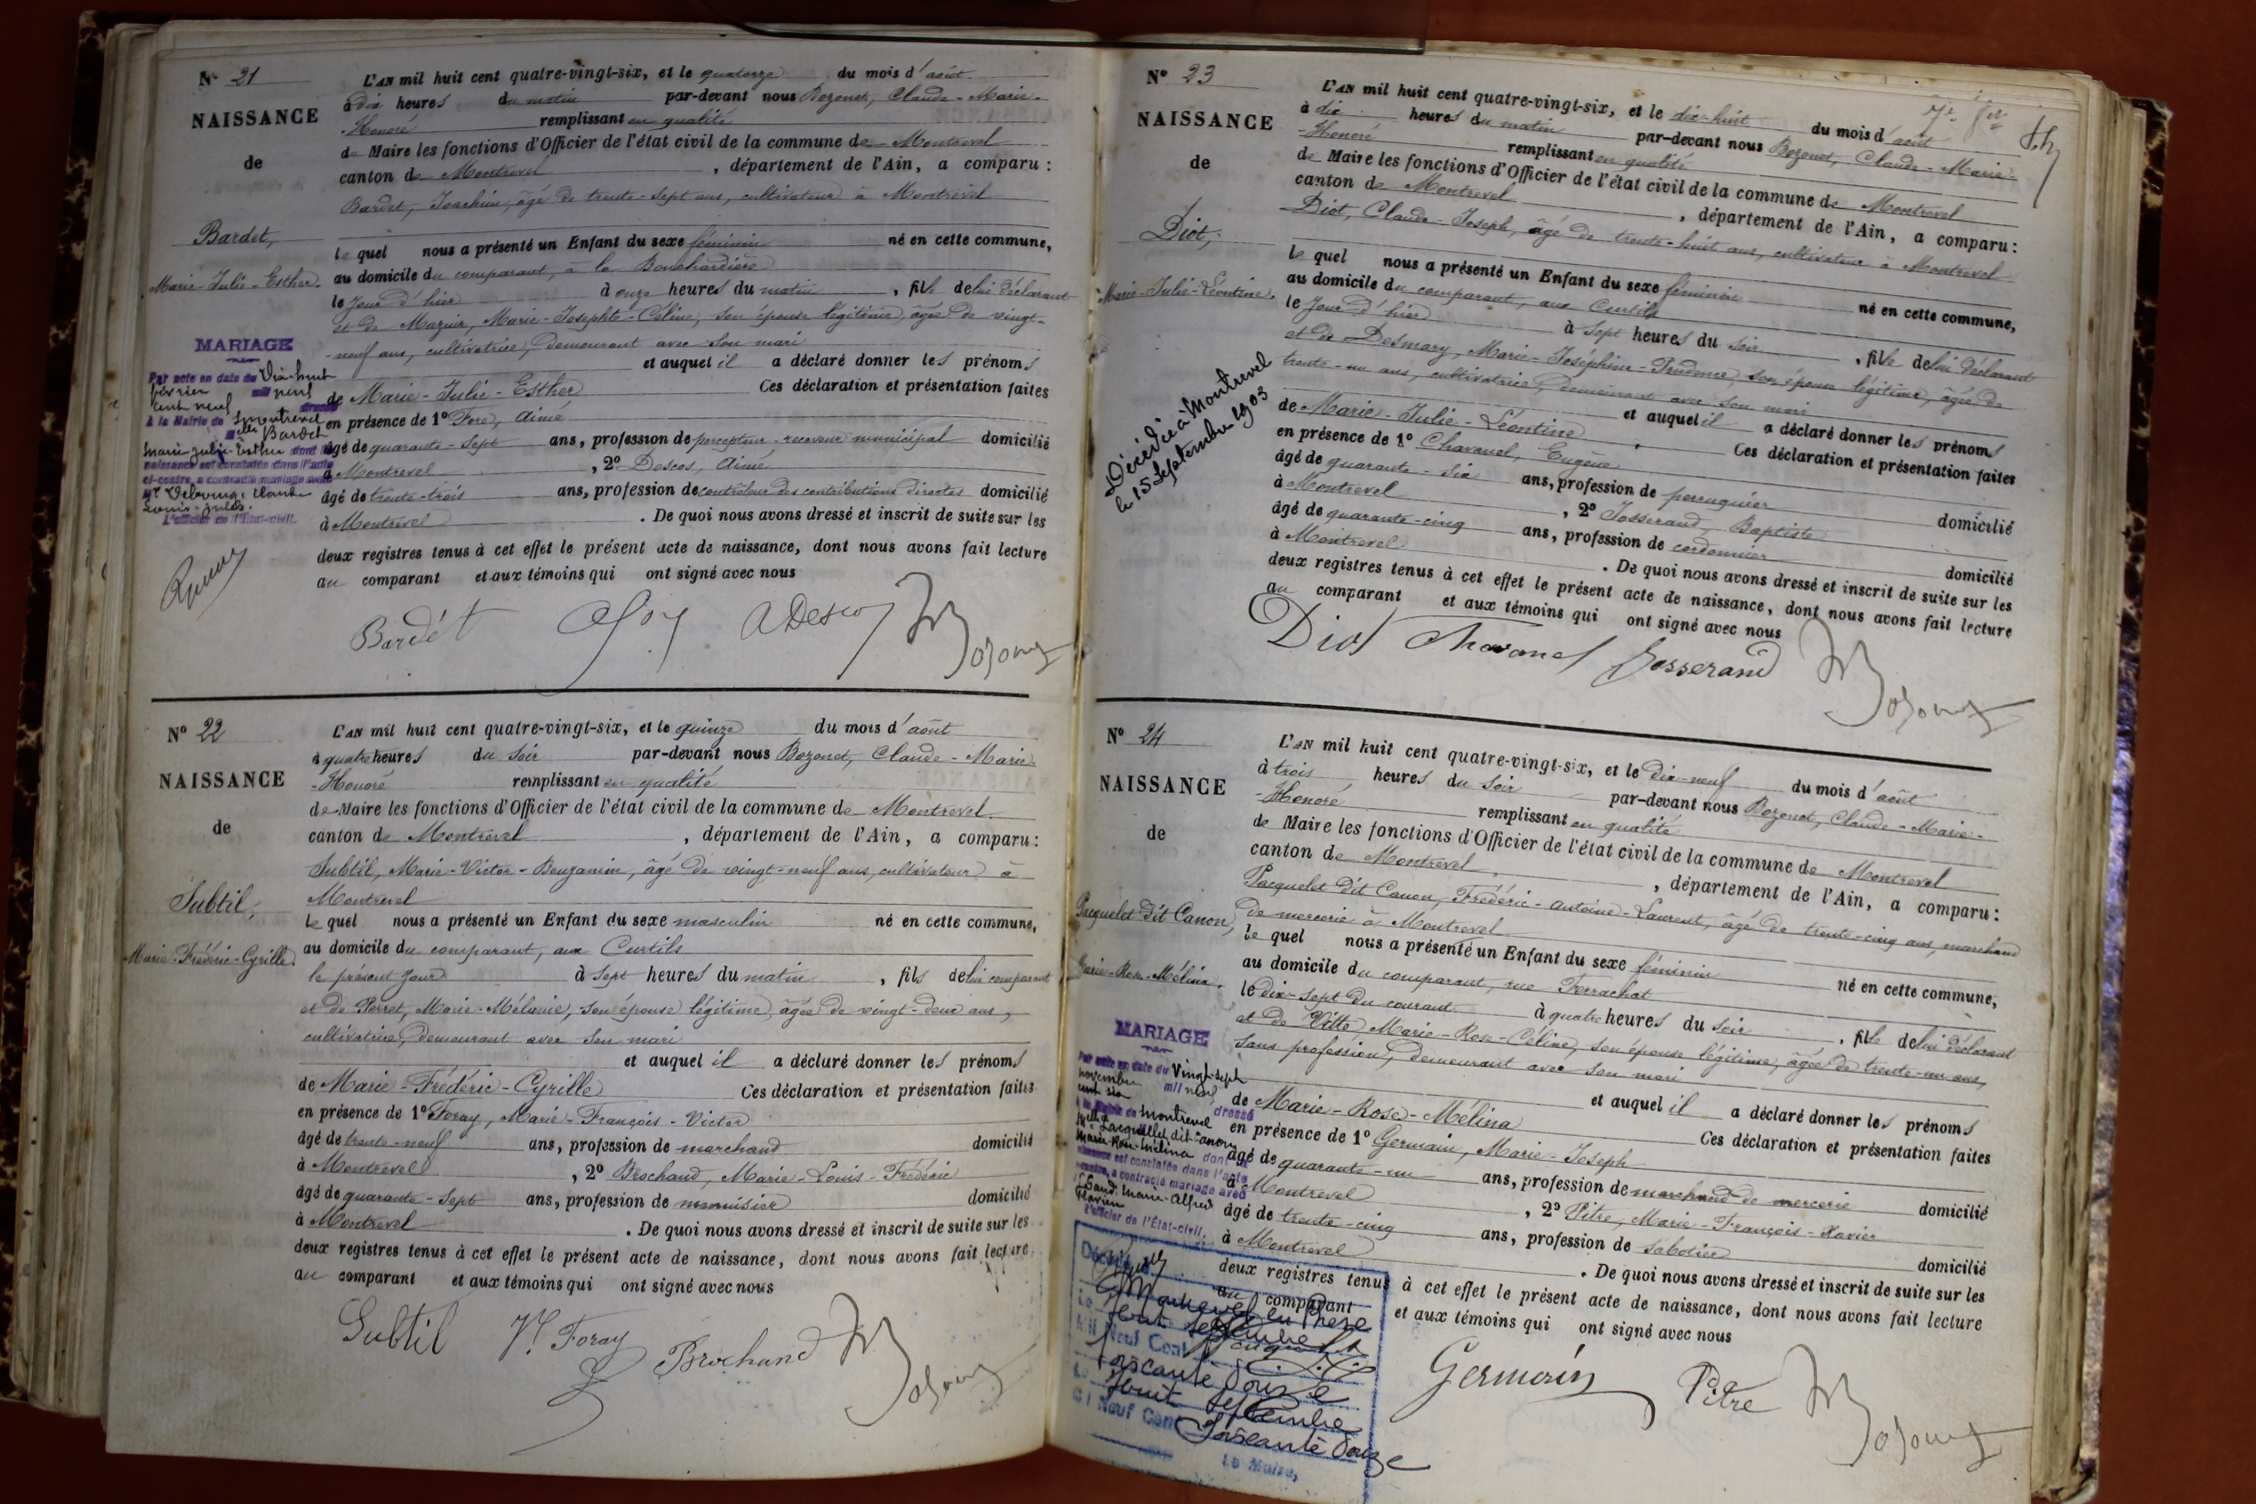 N° 21
NAISSANCE
de
Bardet,
Marie-Julie-Esther.
MARIAGE
Par acte en date du Dix-huit
février mil neuf
cent neuf dressé
à la Mairie de Montrevel
Melle Bardet
Marie Julie Esther dont la
naissance est constatée dans l'acte
ci-contre, a contracté mariage avec
Louis-Jules.
L'officier de l'Etat-civil.
L'AN mil huit cent quatre-vingt-six, et le quatorze du mois d'août
à dix heures du matin par-devant nous Bozonet, Claude-Marie-
-Honoré remplissant en qualité
de Maire les fonctions d'Officier de l'état civil de la commune de Montrevel
canton de Montrevel, département de l'Ain, a comparu :
Bardet, Joachim, âgé de trente-sept ans, cultivateur à Montrevel
le quel nous a présenté un Enfant du sexe féminin né en cette commune,
au domicile du comparant, à la Bouchardière
le jour d'hier à onze heures du matin, fille de lui déclarant
et de Mazuir, Marie-Josephte-Céline, son épouse légitime, âgée de vingt-
-neuf ans, cultivatrice, demeurant avec son mari
et auquel il a déclaré donner les prénoms
de Marie-Julie-Esther Ces déclaration et présentation faites
en présence de 1° Fore, Aimé
âgé de quarante-sept ans, profession de percepteur-receveur municipal domicilié
à Montrevel, 2° Descos, Aimé
âgé de trente-trois ans, profession de contrôleur des contributions directes domicilié
à Montrevel. De quoi nous avons dressé et inscrit de suite sur les
deux registres tenus à cet effet le présent acte de naissance, dont nous avons fait lecture
au comparant et aux témoins qui ont signé avec nous
Bardet ADescos Bozonet
N° 22
NAISSANCE
de
Subtil,
Marie-Frédéric-Cyrille.
L'AN mil huit cent quatre-vingt-six, et le quinze du mois d'août
à quatre heures du soir par-devant nous Bozonet, Claude-Marie-
-Honoré remplissant en qualité
de Maire les fonctions d'Officier de l'état civil de la commune de Montrevel
canton de Montrevel, département de l'Ain, a comparu :
Subtil, Marie-Victor-Benjamin, âgé de vingt-neuf ans, cultivateur à
Montrevel
le quel nous a présenté un Enfant du sexe masculin né en cette commune,
au domicile du comparant, aux Curtils
le présent jour à sept heures du matin, fils de lui comparant
et de Perret, Marie-Mélanie, son épouse légitime, âgée de vingt-deux ans,
cultivatrice, demeurant avec son mari
et auquel il a déclaré donner les prénoms
de Marie-Frédéric-Cyrille Ces déclaration et présentation faites
en présence de 1° Foray, Marie-François-Victor
âgé de trente-neuf ans, profession de marchand domicilié
à Montrevel, 2° Brochand, Marie-Louis-Frédéric
âgé de quarante-sept ans, profession de menuisier domicilié
à Montrevel. De quoi nous avons dressé et inscrit de suite sur les
deux registres tenus à cet effet le présent acte de naissance, dont nous avons fait lecture
au comparant et aux témoins qui ont signé avec nous
Subtil Vr Foray Brochand Bozonet
N° 23
NAISSANCE
de
Diot,
Marie-Julie-Léontine.
Décédée à Montrevel
le 15 Septembre 1903
L'AN mil huit cent quatre-vingt-six, et le dix-huit du mois d'août
à dix heures du matin par-devant nous Bozonet, Claude-Marie-
-Honoré remplissant en qualité
de Maire les fonctions d'Officier de l'état civil de la commune de Montrevel
canton de Montrevel, département de l'Ain, a comparu :
Diot, Claude-Joseph, âgé de trente-huit ans, cultivateur à Montrevel
le quel nous a présenté un Enfant du sexe féminin né en cette commune,
au domicile du comparant, aux Curtils
le jour d'hier à sept heures du soir, fille de lui déclarant
et de Desmary, Marie-Joséphine-Prudence, son épouse légitime, âgée de
trente-un ans, cultivatrice, demeurant avec son mari
et auquel il a déclaré donner les prénoms
de Marie-Julie-Léontine. Ces déclaration et présentation faites
en présence de 1° Chavanel, Eugène
âgé de quarante-six ans, profession de perruquier domicilié
à Montrevel, 2° Josserand, Baptiste
âgé de quarante-cinq ans, profession de cordonnier domicilié
à Montrevel. De quoi nous avons dressé et inscrit de suite sur les
deux registres tenus à cet effet le présent acte de naissance, dont nous avons fait lecture
au comparant et aux témoins qui ont signé avec nous
Diot Chavanel Josserand Bozonet
N° 24
NAISSANCE
de
Pacquelet dit Canon,
Marie-Rose-Mélina.
MARIAGE
Par acte en date du Vingt-sept
novembre mil neuf
cent six dressé
à la Mairie de Montrevel
Melle Pacquelet dit Canon
Marie-Rose-Mélina dont la
naissance est constatée dans l'acte
ci-contre, a contracté mariage avec
Marie-Alfred
Flavien
L'officier de l'État-civil.
L'AN mil huit cent quatre-vingt-six, et le dix-neuf du mois d'août
à trois heures du soir par-devant nous Bozonet, Claude-Marie-
-Honoré remplissant en qualité
de Maire les fonctions d'Officier de l'état civil de la commune de Montrevel
canton de Montrevel, département de l'Ain, a comparu :
Pacquelet dit Canon, Frédéric-Antoine-Laurent, âgé de trente-cinq ans, marchand
de mercerie à Montrevel
le quel nous a présenté un Enfant du sexe féminin né en cette commune,
au domicile du comparant, rue Ferrachat
le dix-sept du courant à quatre heures du soir, fille de lui déclarant
et de Vitte, Marie-Rose-Céline, son épouse légitime, âgée de trente-un ans,
sans profession, demeurant avec son mari
et auquel il a déclaré donner les prénoms
de Marie-Rose-Mélina Ces déclaration et présentation faites
en présence de 1° Germain, Marie-Joseph
âgé de quarante-un ans, profession de marchand de mercerie domicilié
à Montrevel, 2° Pitre, Marie-François-Xavier
âgé de trente-cinq ans, profession de sabotier domicilié
à Montrevel. De quoi nous avons dressé et inscrit de suite sur les
deux registres tenus à cet effet le présent acte de naissance, dont nous avons fait lecture
au comparant et aux témoins qui ont signé avec nous
Germain Pitre Bozonet
septembre
Mil Neuf Cent
soixante douze
Le huit septembre
Mil Neuf Cent
soixante douze
Le Maire,